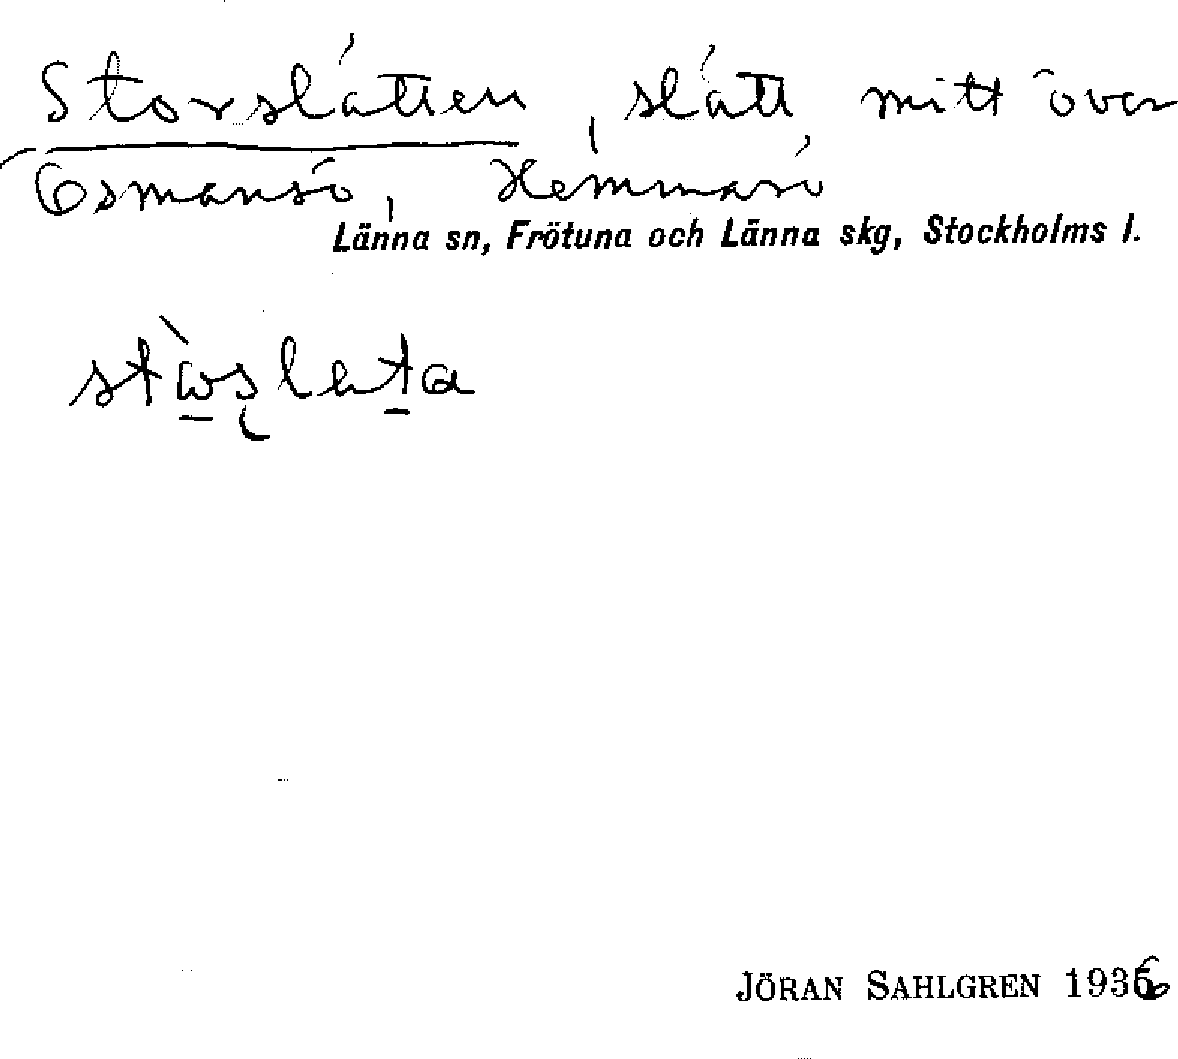 Storslåtten, slått mitt över
Osmansö, Hemmarö
Länna sn, Frötuna och Länna skg, Stockholms l.
JÖRAN SAHLGREN 1936